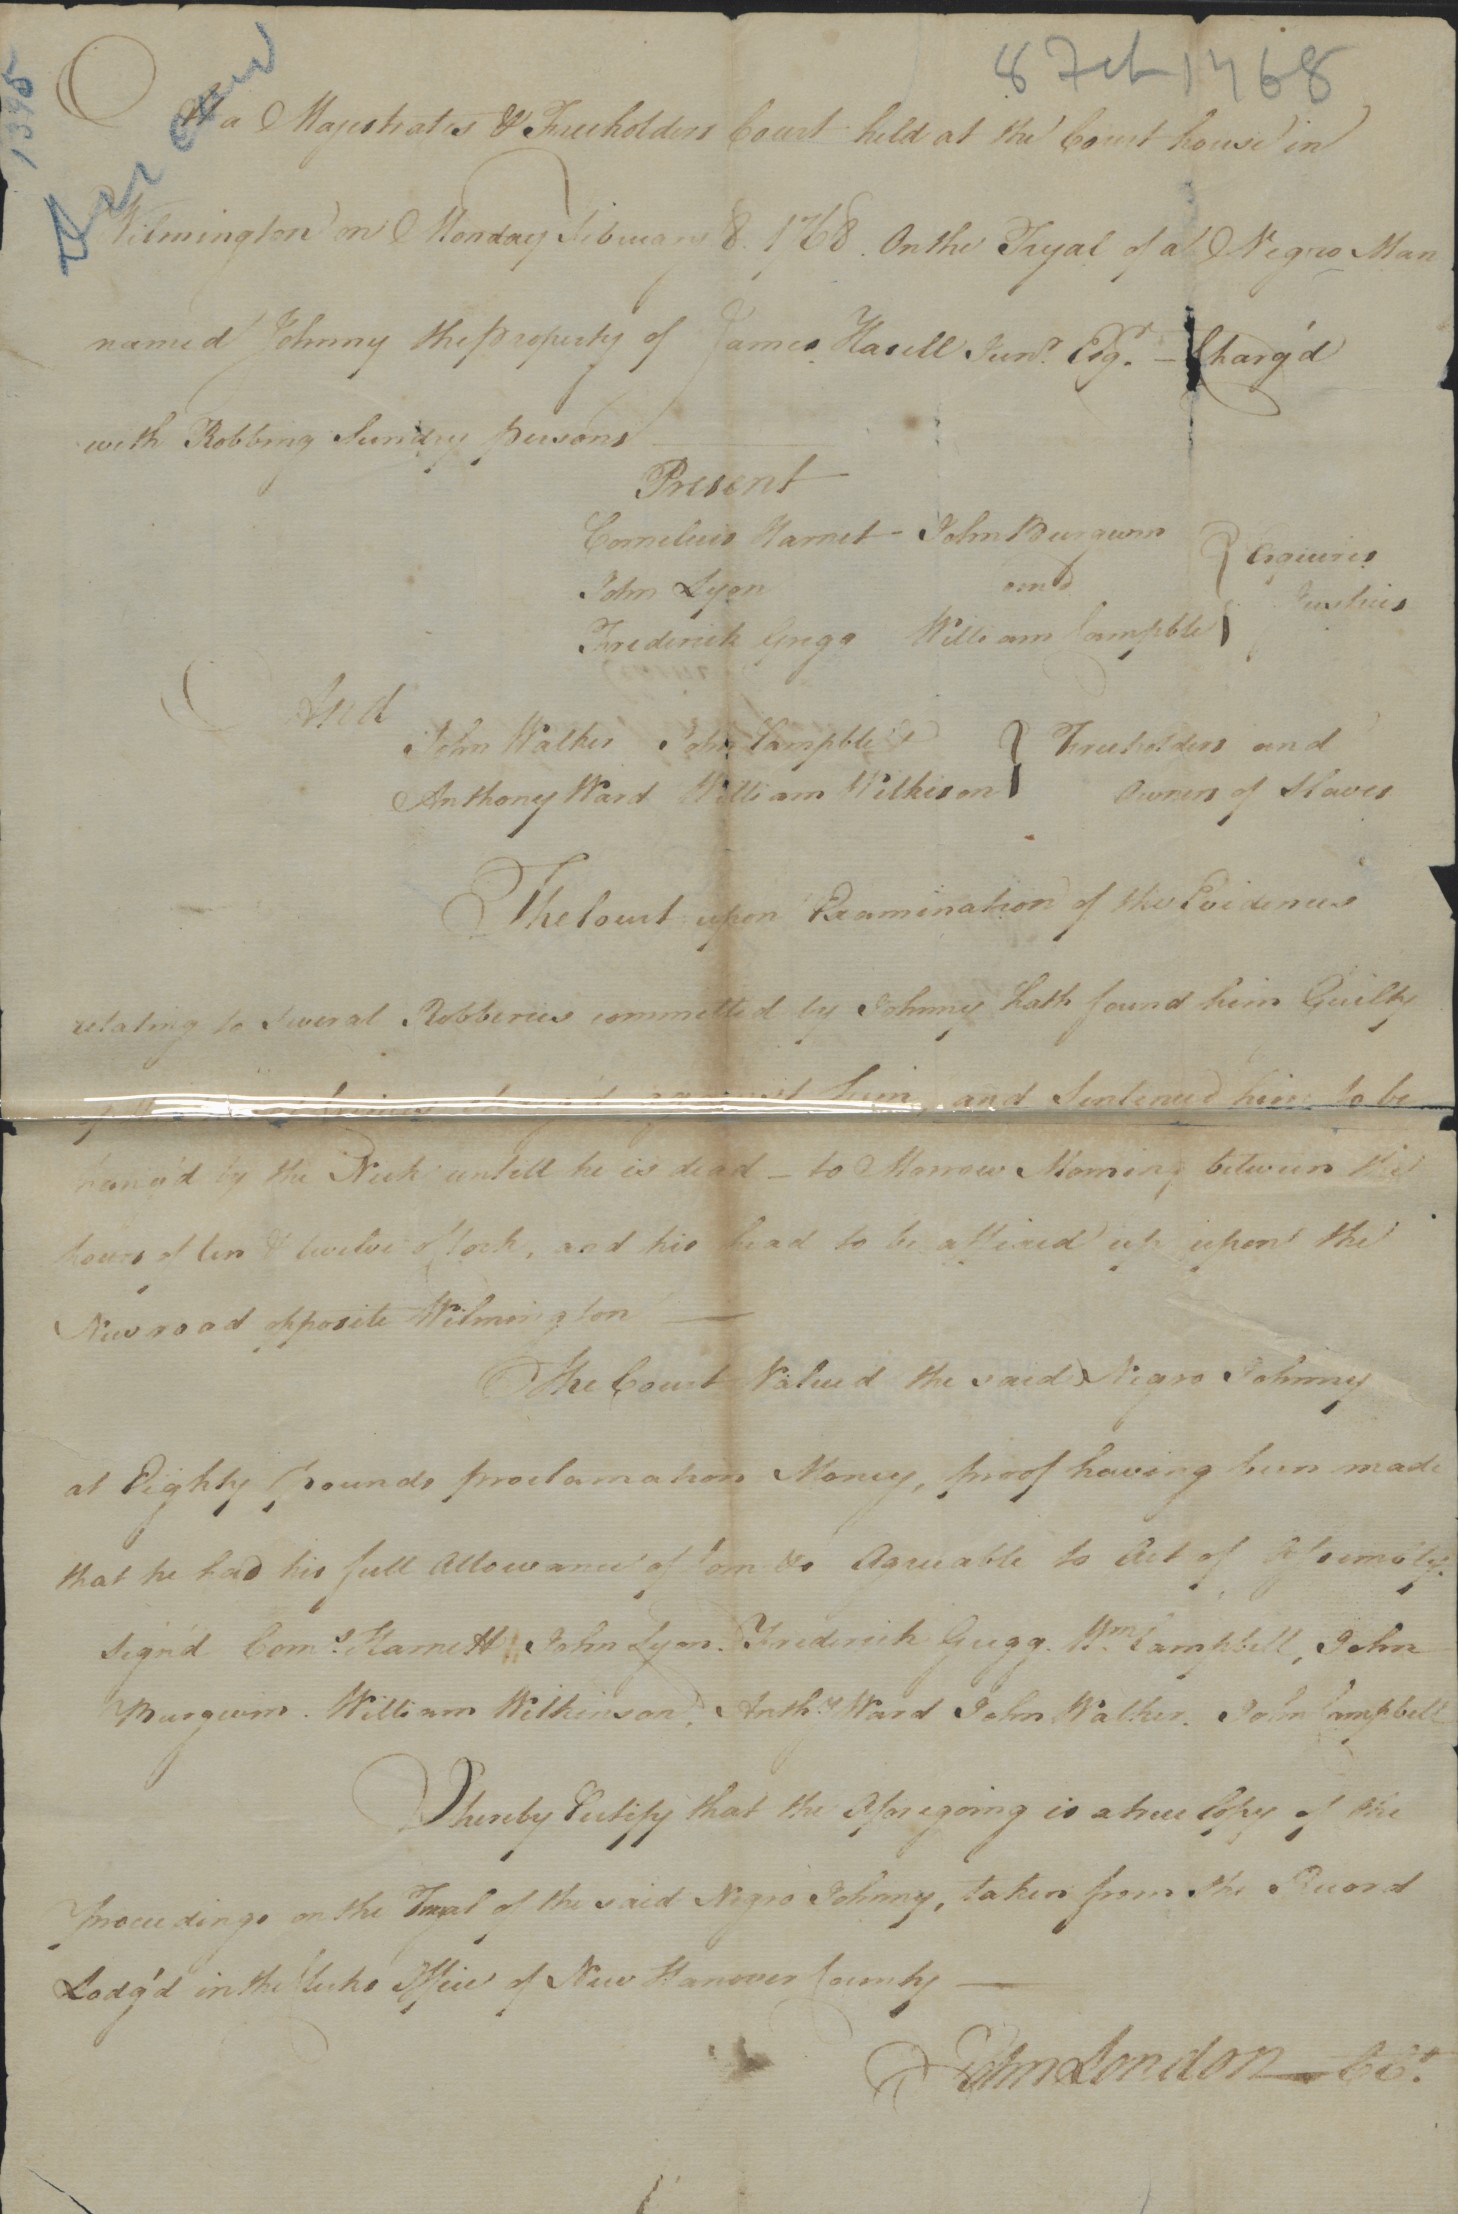 8 Feb 1768
1395
At a Magestrates & Freeholders Court held at the Court house in
Wilmington on Monday February 8. 1768. On the Tryal of a Negro Man
named Johnny the property of James Hasell Junr. Esqr. — Charg'd
with Robbing Sundry persons
Present
Cornelius Harnet - John Burgwin
John Lyon and
Frederick Gregg William Campble
Esquires
Justices
And
John Walker John Campble
Anthony Ward William Wilkison
Freeholders and
Owners of Slaves
The Court upon Examination of the Evidences
relating to several Robberies committed by Johnny hath found him Guilty
against him, and Sentenced him to be
hang'd by the Neck untill he is dead — to Morrow Morning between the
hours of ten & twelve o'Clock, and his head to be affixed up upon the
New road opposite Wilmington —
The Court Valued the said Negro Johnny
at Eighty Pounds proclamation Money, proof having been made
that he had his full Allowance of Corn &c Agreeable to Act of Assembly.
sign'd Corns. Harnett John Lyon. Frederick Gregg. Wm. Campbell, John
Burgwin. William Wilkinson. Anthy. Ward John Walker. John Campbell
I hereby Certify that the Aforegoing is a true Copy of the
Proceedings on the Tryal of the said Negro Johnny, taken from the Record
Lodg'd in the Clerks Office of New Hanover County —
John London — CCt.